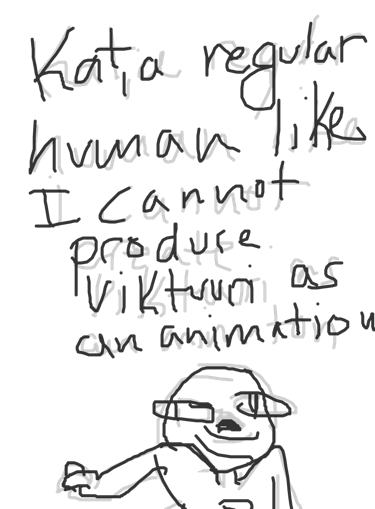 Kat, a regular
human like
I cannot
produce
Viktuuri as
an animation